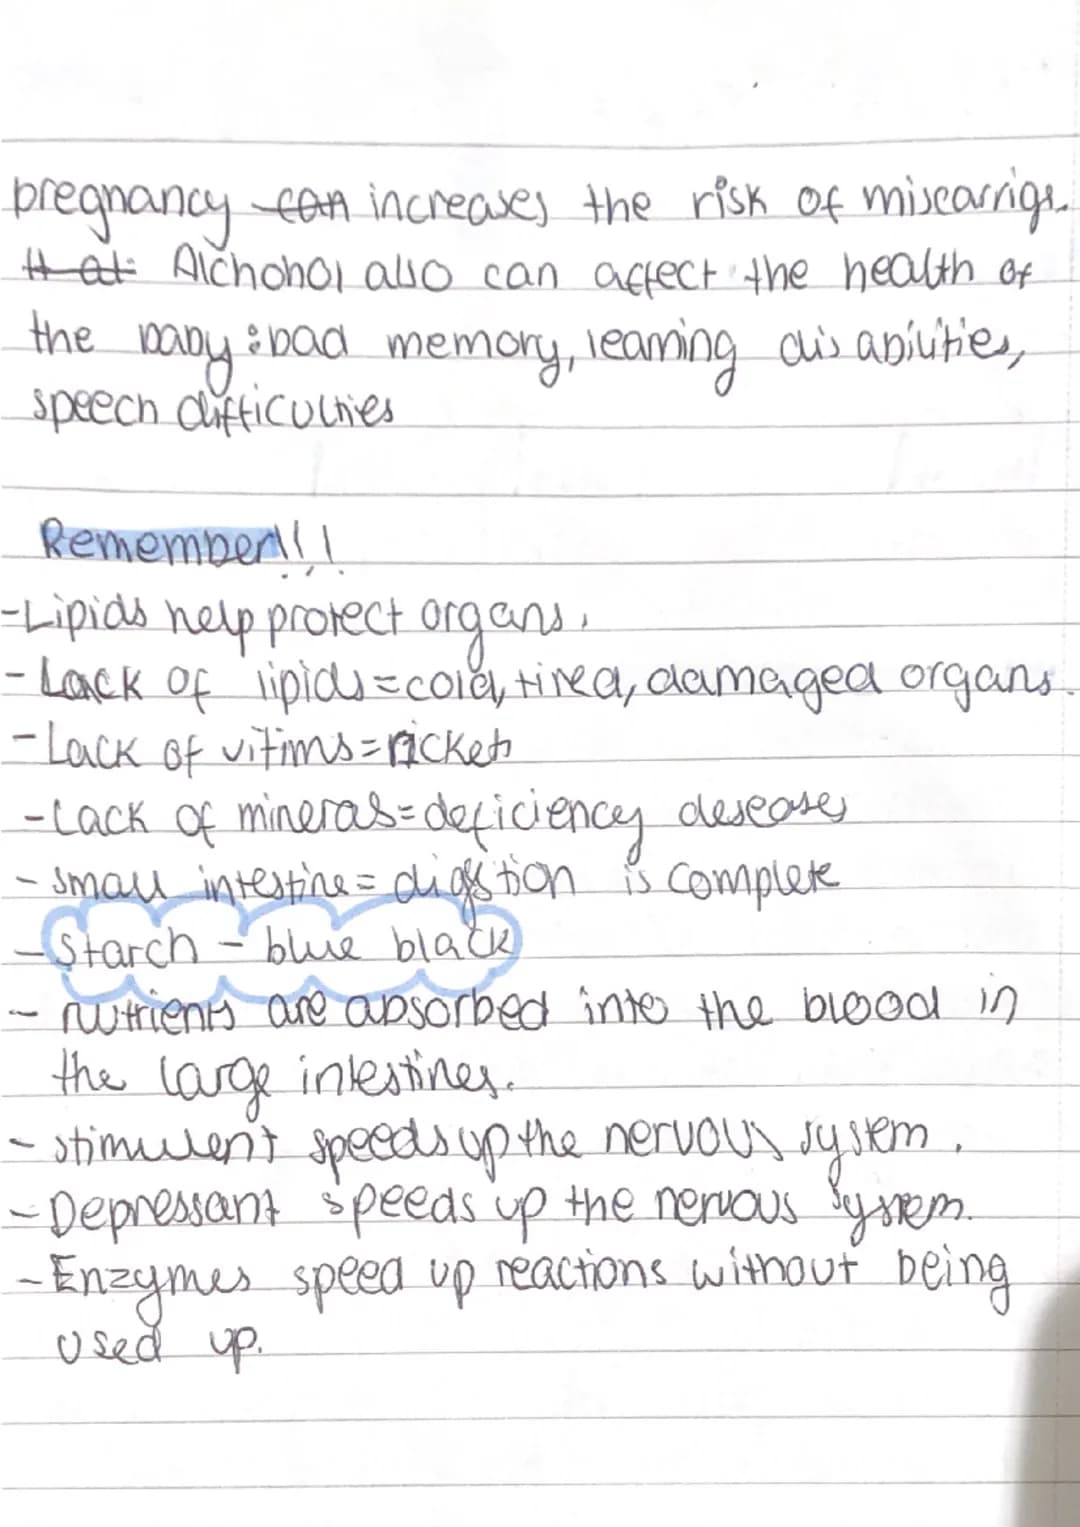 pregnancy can increases the risk of miscarrige.
It at Alchohol also can affect the health of
the baby: bad memory, learning disabilities,
speech difficulties
Remember!!!
-Lipids help protect organs.
- Lack of lipids=cold, tired, damaged organs.
- Lack of vitims=rickets
- Lack of mineras=deficiency deseases
- small intestine= digstion is complete
- Starch - blue black
- nutrients are absorbed into the blood in
the large intestines.
- stimulent speeds up the nervous system.
- Depressant speeds up the nervous system.
- Enzymes speed up reactions without being
used up.